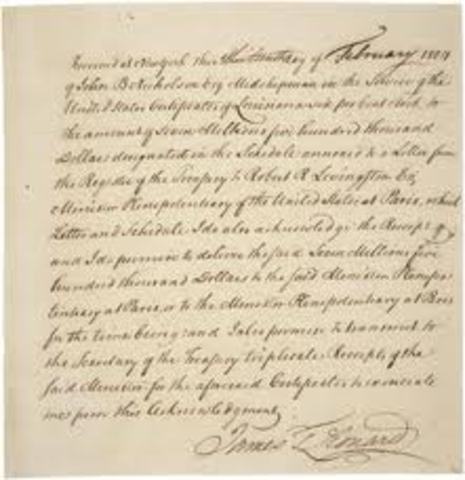 Received at New York this thirteenth day of February 1804
of John B Nicholson Esq Midshipman in the Service of the
United States Certificates of Louisiana six per Cent Stock, to
the amount of Seven Millions five hundred thousand
Dollars designated in the Schedule annexed to a Letter from
the Register of the Treasury to Robert R Livingston Esq
Minister Plenipotentiary of the United States at Paris, which
Letter and Schedule I do also acknowledge the Receipt of
and I do promise to deliver the said Seven Millions five
hundred thousand Dollars to the said Minister Plenipo
tentiary at Paris, or to the Minister Plenipotentiary at Paris
for the time being: and I also promise to transmit to
the Secretary of the Treasury triplicate Receipts of the
said Minister for the aforesaid Certificates to exonerate
me from this Acknowledgment
James Leonard